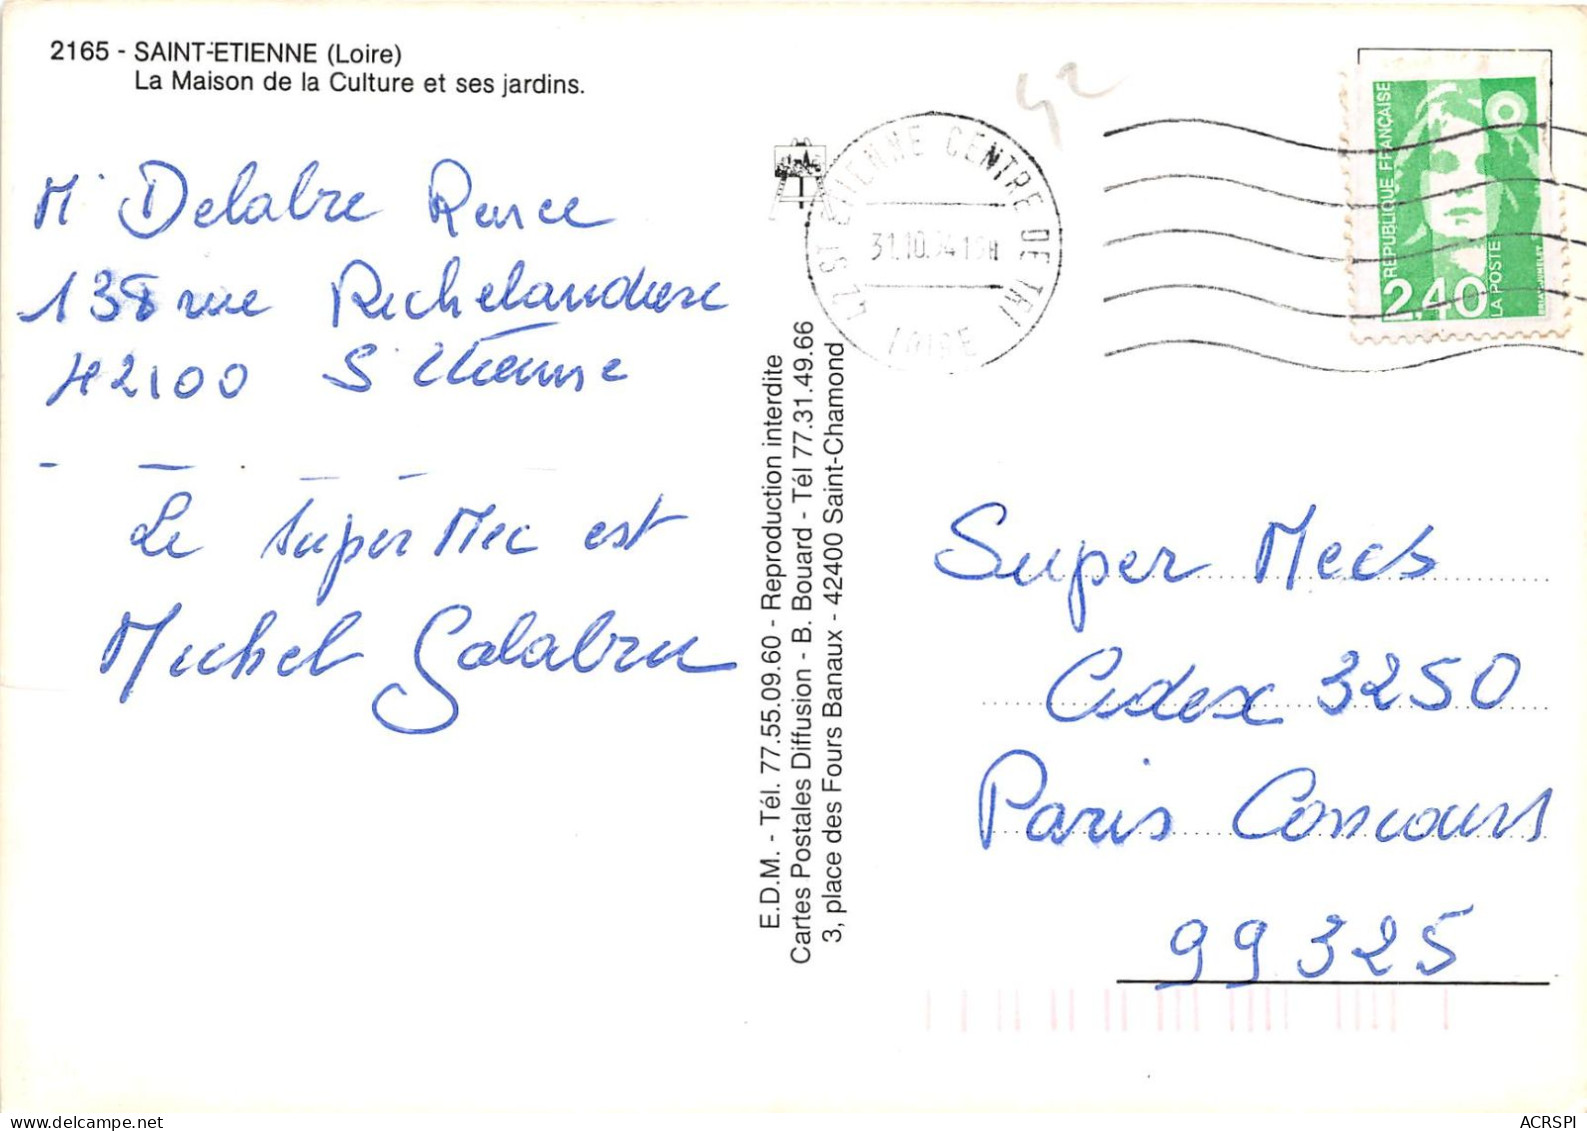 2165 - SAINT-ETIENNE (Loire)
La Maison de la Culture et ses jardins.
Mr Delabre
138 rue Richelandiere
42100 St Etienne
Le super Mec est
Michel Galabru
E.D.M. - Tél. 77.55.09.60 - Reproduction interdite
Cartes Postales Diffusion - B. Bouard - Tél 77.31.49.66
3, place des Fours Banaux - 42400 Saint-Chamond
42
42 ST ETIENNE CENTRE DE TRI
31.10.94
LOIRE
REPUBLIQUE FRANÇAISE
2,40
LA POSTE
Super Mecs
Cedex 3250
Paris Concours
99325
ACRSPI